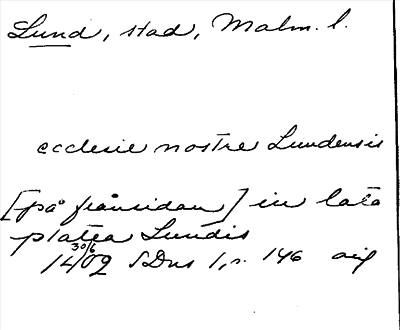 Lund, stad, Malm. l.
ecclesie nostre Lundensis
[på frånsidan] in lata
platea Lundis
14 30/6 02 SDns 1, s. 146 orig